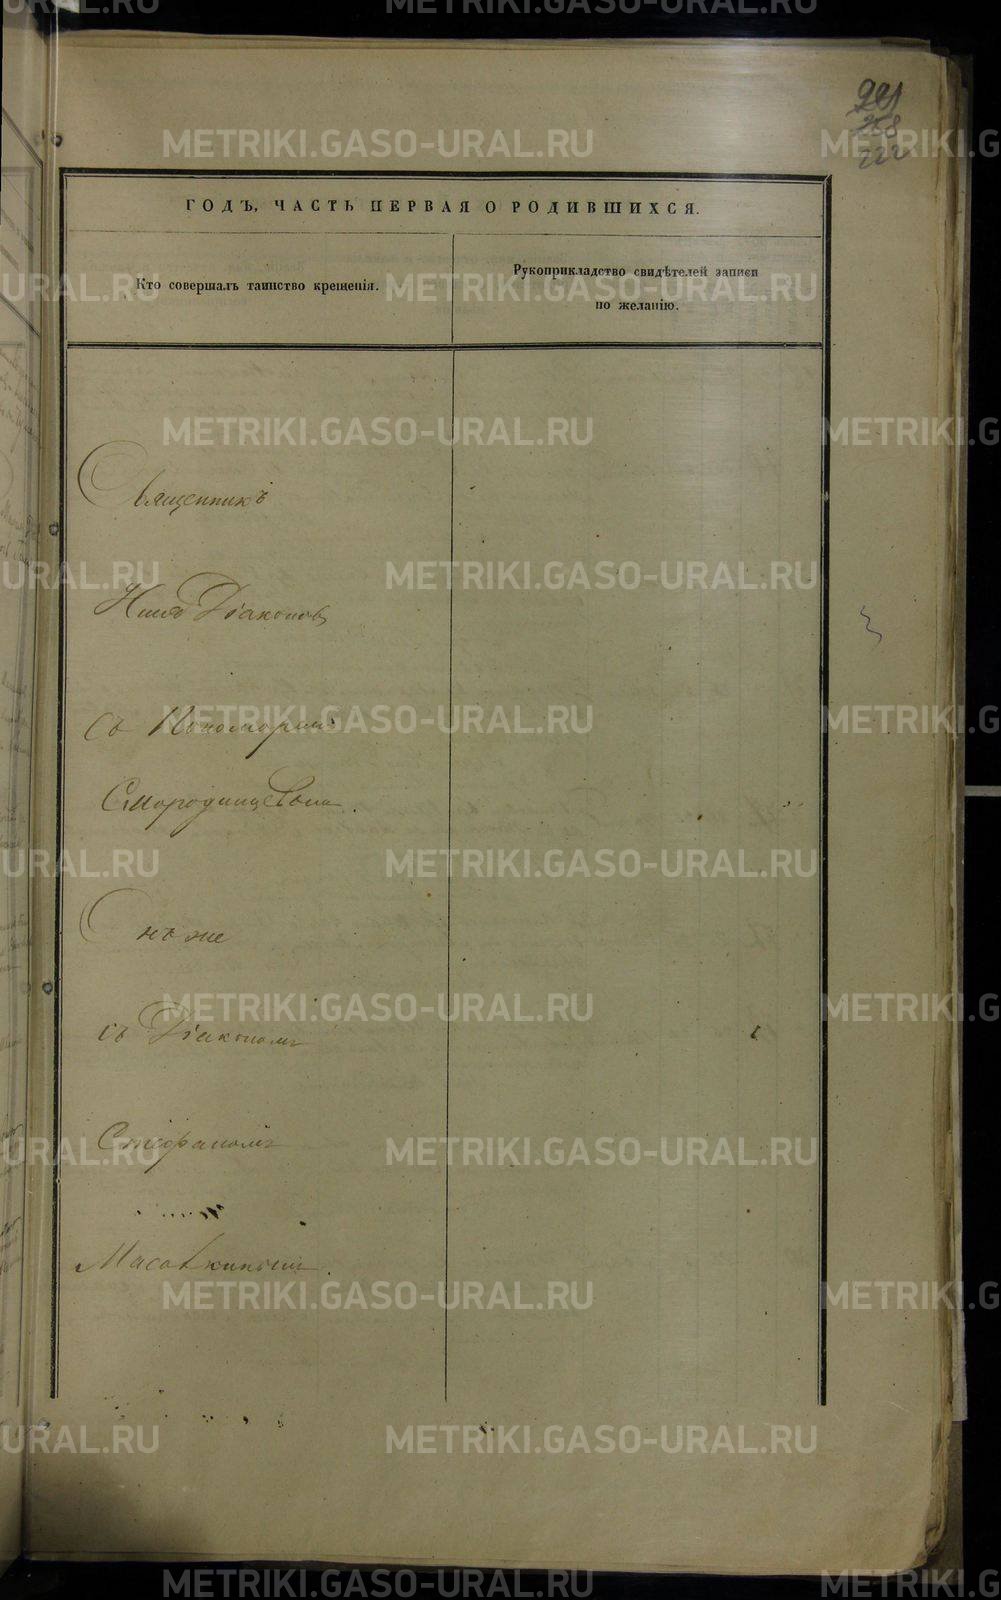 221
258
222
ГОДЪ, ЧАСТЬ ПЕРВАЯ О РОДИВШИХСЯ.
Кто совершалъ таинство крещенія.
Рукоприкладство свидѣтелей записи
по желанію.
Священникъ
Дьяконовъ
съ Пономаремъ
Смородинцевымъ.
Онъ же
съ Діакономъ
Стефаномъ
METRIKI.GASO-URAL.RU